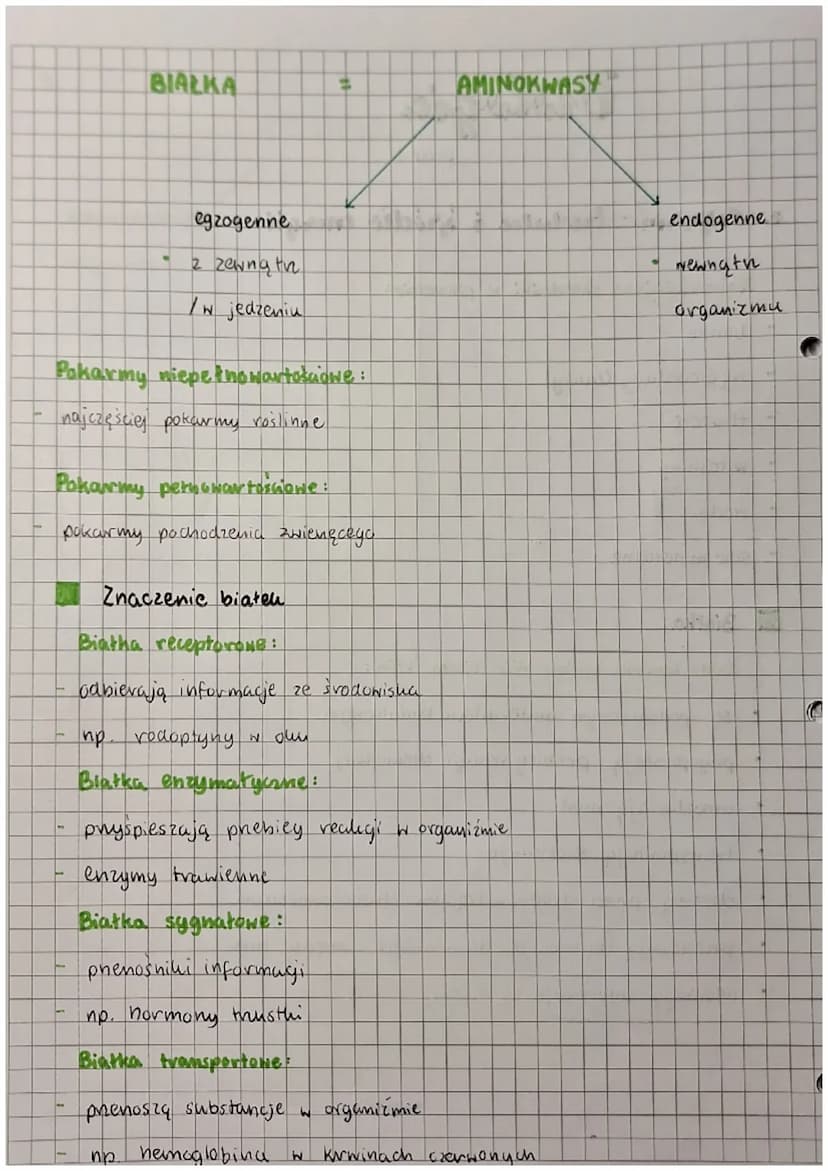 BIAŁKA = AMINOKWASY
egzogenne endogenne
• z zewnątrz • wewnątrz
/w jedzeniu organizmu
Pokarmy niepełnowartościowe:
- najczęściej pokarmy roślinne
Pokarmy pełnowartościowe:
- pokarmy pochodzenia zwierzęcego
Znaczenie białek
Białka receptorowe:
- odbierają informacje ze środowiska
- np. rodopsyny w oku
Białka enzymatyczne:
- przyśpieszają przebieg reakcji w organiźmie
- enzymy trawienne
Białka sygnałowe:
- przenośniki informacji
- np. hormony trzustki
Białka transportowe:
- przenoszą substancje w organiźmie
- np. hemoglobina w krwinach czerwonych